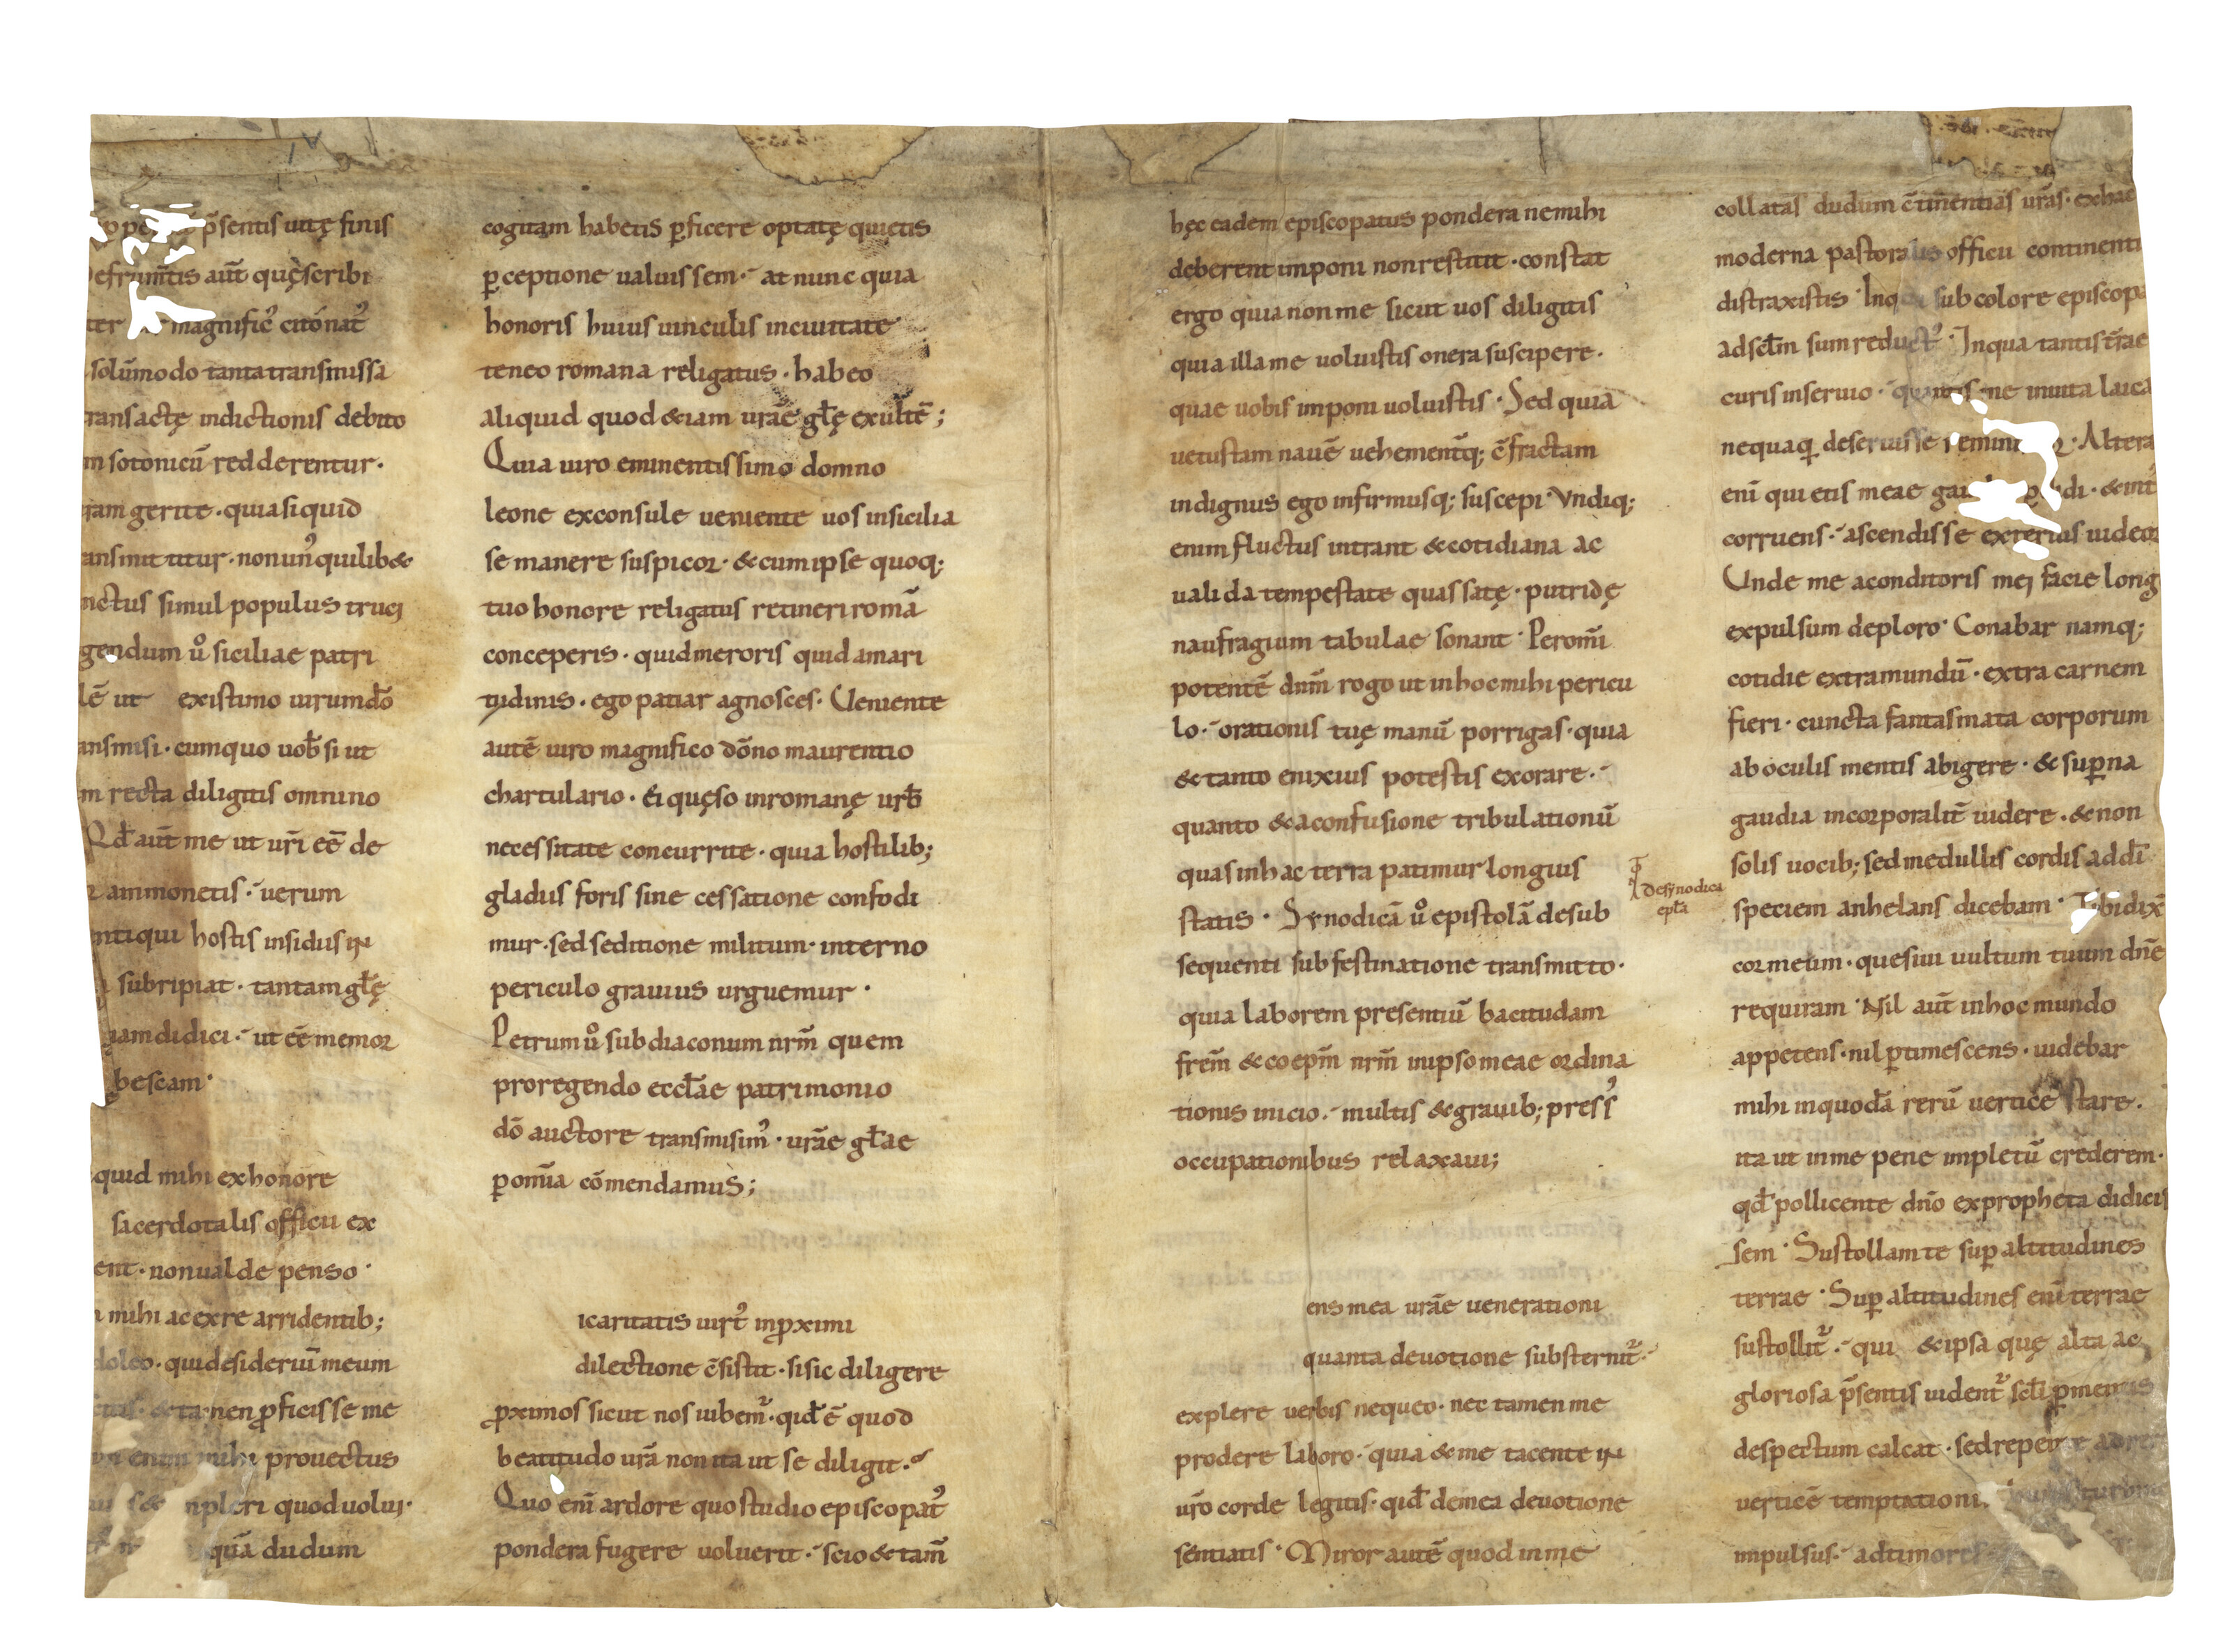 p̄sentis uitę finis
efrum̄tis aut̄ quę scribi
ter magnific᾽ citonat᾽
solūmodo tanta transmissa
transactę indictionis debito
m sotonicū redderentur·
ram gerite· quia si quid
ansmittitur· non un᾽ quilib&
nctus simul populus truci
gendum ů siciliae patri
lē ut existimo uirum do̅
ansmisi· cum quo uob̄ si ut
m recta diligitis omnino
Qđ aut̄ me ut ur̄i eē de
ammonetis· uerum
ntiqui hostis insidiis in
subripiat· tantam gƚę
iam didici· ut eē memor
bescam·
quid mihi ex honore
sacerdotalis officii ex
ent· non ualde penso·
mihi ac ex re arridentib;
doleo· qui desideriū meum
& tamen ꝓficisse me
enim mihi prouectus
npleri quod uolui·
quā dudum
cogitam habetis ꝑficere optatę quietis
ꝑceptione ualuissem· at nunc quia
honoris huius uinculis inciuitate
teneo romana religatus· habeo
aliquid quod &iam urāe gƚę exultē;
Quia uiro eminentissimo domno
leone exconsule ueniente uos insicilia
se manere suspicor· & cum ipse quoq;
tuo honore religatus retineri romā
conceperis· quid meroris quid amari
tudinis· ego patiar agnosces· Ueniente
autē uiro magnifico dōno maurentio
chartulario· Ei quęso in romanę urƀ
necessitate concurrite· quia hostilib;
gladiis foris sine cessatione confodi
mur· sed seditione militum· interno
periculo grauius urguemur·
Petrum ů subdiaconum nrm̄ quem
pro regendo eccƚae patrimonio
dō auctore transmisim᾽· urāe gƚae
ꝑ omīa cōmendamus;
icaritatis uirt᾽ in ꝓximi
dilectione c̄sistit· si sic diligere
ꝓximos sicut nos iubem̄· qiđ ē quod
beatitudo urā non ita ut se diligit·
Quo enī ardore quo studio episcopat᾽
pondera fugere uoluerit· scio & tam̄
hęc eadem episcopatus pondera ne mihi
deberent imponi non restitit· constat
ergo quia non me sicut uos diligitis
quia illa me uoluistis onera suscipere·
quae uobis imponi uoluistis· Sed quia
uetustam nauē uehementq; c̄fractam
indignus ego infirmusq; suscepi· Undiq;
enim fluctus intrant & cotidiana ac
ualida tempestate quassatę· putridę
naufragium tabulae sonant· Per om̄i
potentē dnm̄ rogo ut in hoc mihi pericu
lo· orationis tuę manū porrigas· quia
& tanto enixius potestis exorare·
quanto & a confusione tribulationū
quas in hac terra patimur longius
statis· Synodicā ů epistolā de sub
sequenti sub festinatione transmitto·
quia laborem presentiū bacitudam
frem̄ & coepm̄ nrm̄ in ipso meae ordina
tionis inicio· multis & grauib; press᾽
occupationibus relaxaui;
De synodica
epƚa
ens mea urāe uenerationi
quanta deuotione substernit᾽·
explere uerbis nequeo· nec tamen me
prodere laboro· quia & me tacente in
uro̅ corde legitis· qiđ de mea deuotione
sentiatis· Miror autē quod in me
collatas dudum c̄tinentias urās· ex hac
moderna pastoralis officii continenti
distraxistis· In qua sub colore episcopa
ad sclm̄ sum reduct᾽· In qua tantis trāe
curis inseruio· quantis me in uita laica
nequaq̄ deseruisse · Altera
enī quietis meae
corruens· ascendisse exterius uideor
Unde me a conditoris mei facie long
expulsum deploro· Conabar namq;
cotidie extra mundū· extra carnem
fieri· cuncta fantasmata corporum
ab oculis mentis abigere· & suꝑna
gaudia incorporalit̄ uidere· & non
solis uocib; sed medullis cordis ad dī
speciem anhelans dicebam· Tibi dix̄
cor meum· quesiui uultum tuum dnē
requiram· Nil aut̄ in hoc mundo
appetens· nil ꝑtimescens· uidebar
mihi in quodā rerū uertice stare·
ita ut in me pene impletū crederem·
qđ pollicente dno̅ ex propheta didicis
sem· Sustollam te suꝑ altitudines
terrae· Suꝑ altitudines enī terrae
sustollit᾽· qui & ipsa quę alta ac
gloriosa p̄sentis uident᾽ scƚi ꝑ mentis
despectum calcat· sed repente
uerticē temptationi
impulsus· ad timores